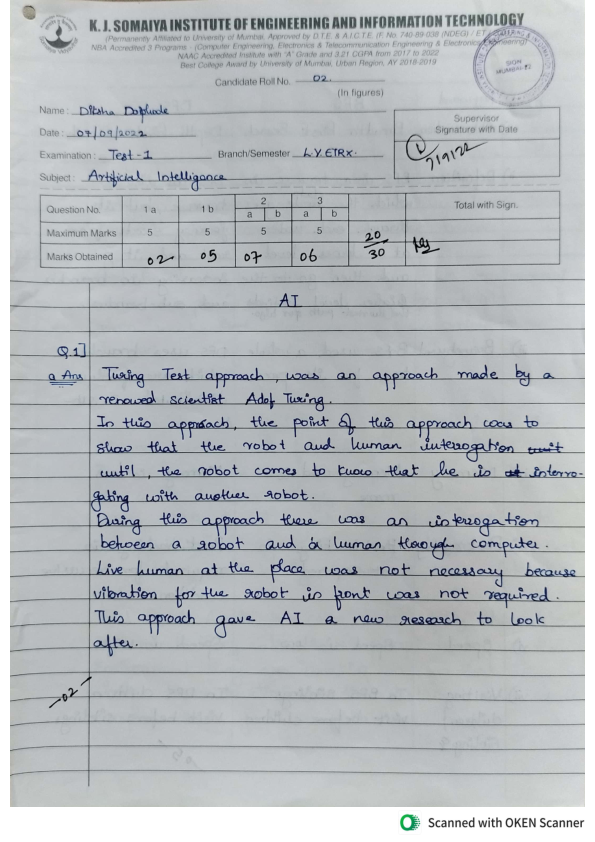 K. J. SOMAIYA INSTITUTE OF ENGINEERING AND INFORMATION TECHNOLOGY
(Permanently Affiliated to University of Mumbai, Approved by D.T.E. & A.I.C.T.E. (F. No. 740-89-039 (NDEG) / ET
NBA Accredited 3 Programs - (Computer Engineering, Electronics & Telecommunication Engineering & Electronics Engineering)
NAAC Accredited Institute with "A" Grade and 3.21 CGPA from 2017 to 2022
Best College Award by University of Mumbai, Urban Region, AY 2018-2019
SION
MUMBAI-22
Candidate Roll No. 02.
(In figures)
Name : Diksha
Date : 07/09/2022
Examination : Test-1 Branch/Semester L.Y.ETRX.
Subject : Artificial Intelligence
Supervisor
Signature with Date
7/9/22
Question No. 1 a 1 b 2 a b 3 a b Total with Sign.
Maximum Marks 5 5 5 5 20
Marks Obtained 02 05 07 06 30
AI
Q.1]
a Ans Turing Test approach, was an approach made by a
renowed scientist Adof Turing.
In this approach, the point of this approach was to
show that the robot and human interrogation unit
until, the robot comes to know that he is at interro-
gating with another robot.
During this approach there was an interrogation
between a robot and a human through computer.
Live human at the place was not necessary because
vibration for the robot in front was not required.
This approach gave AI a new research to look
after.
-02-
Scanned with OKEN Scanner